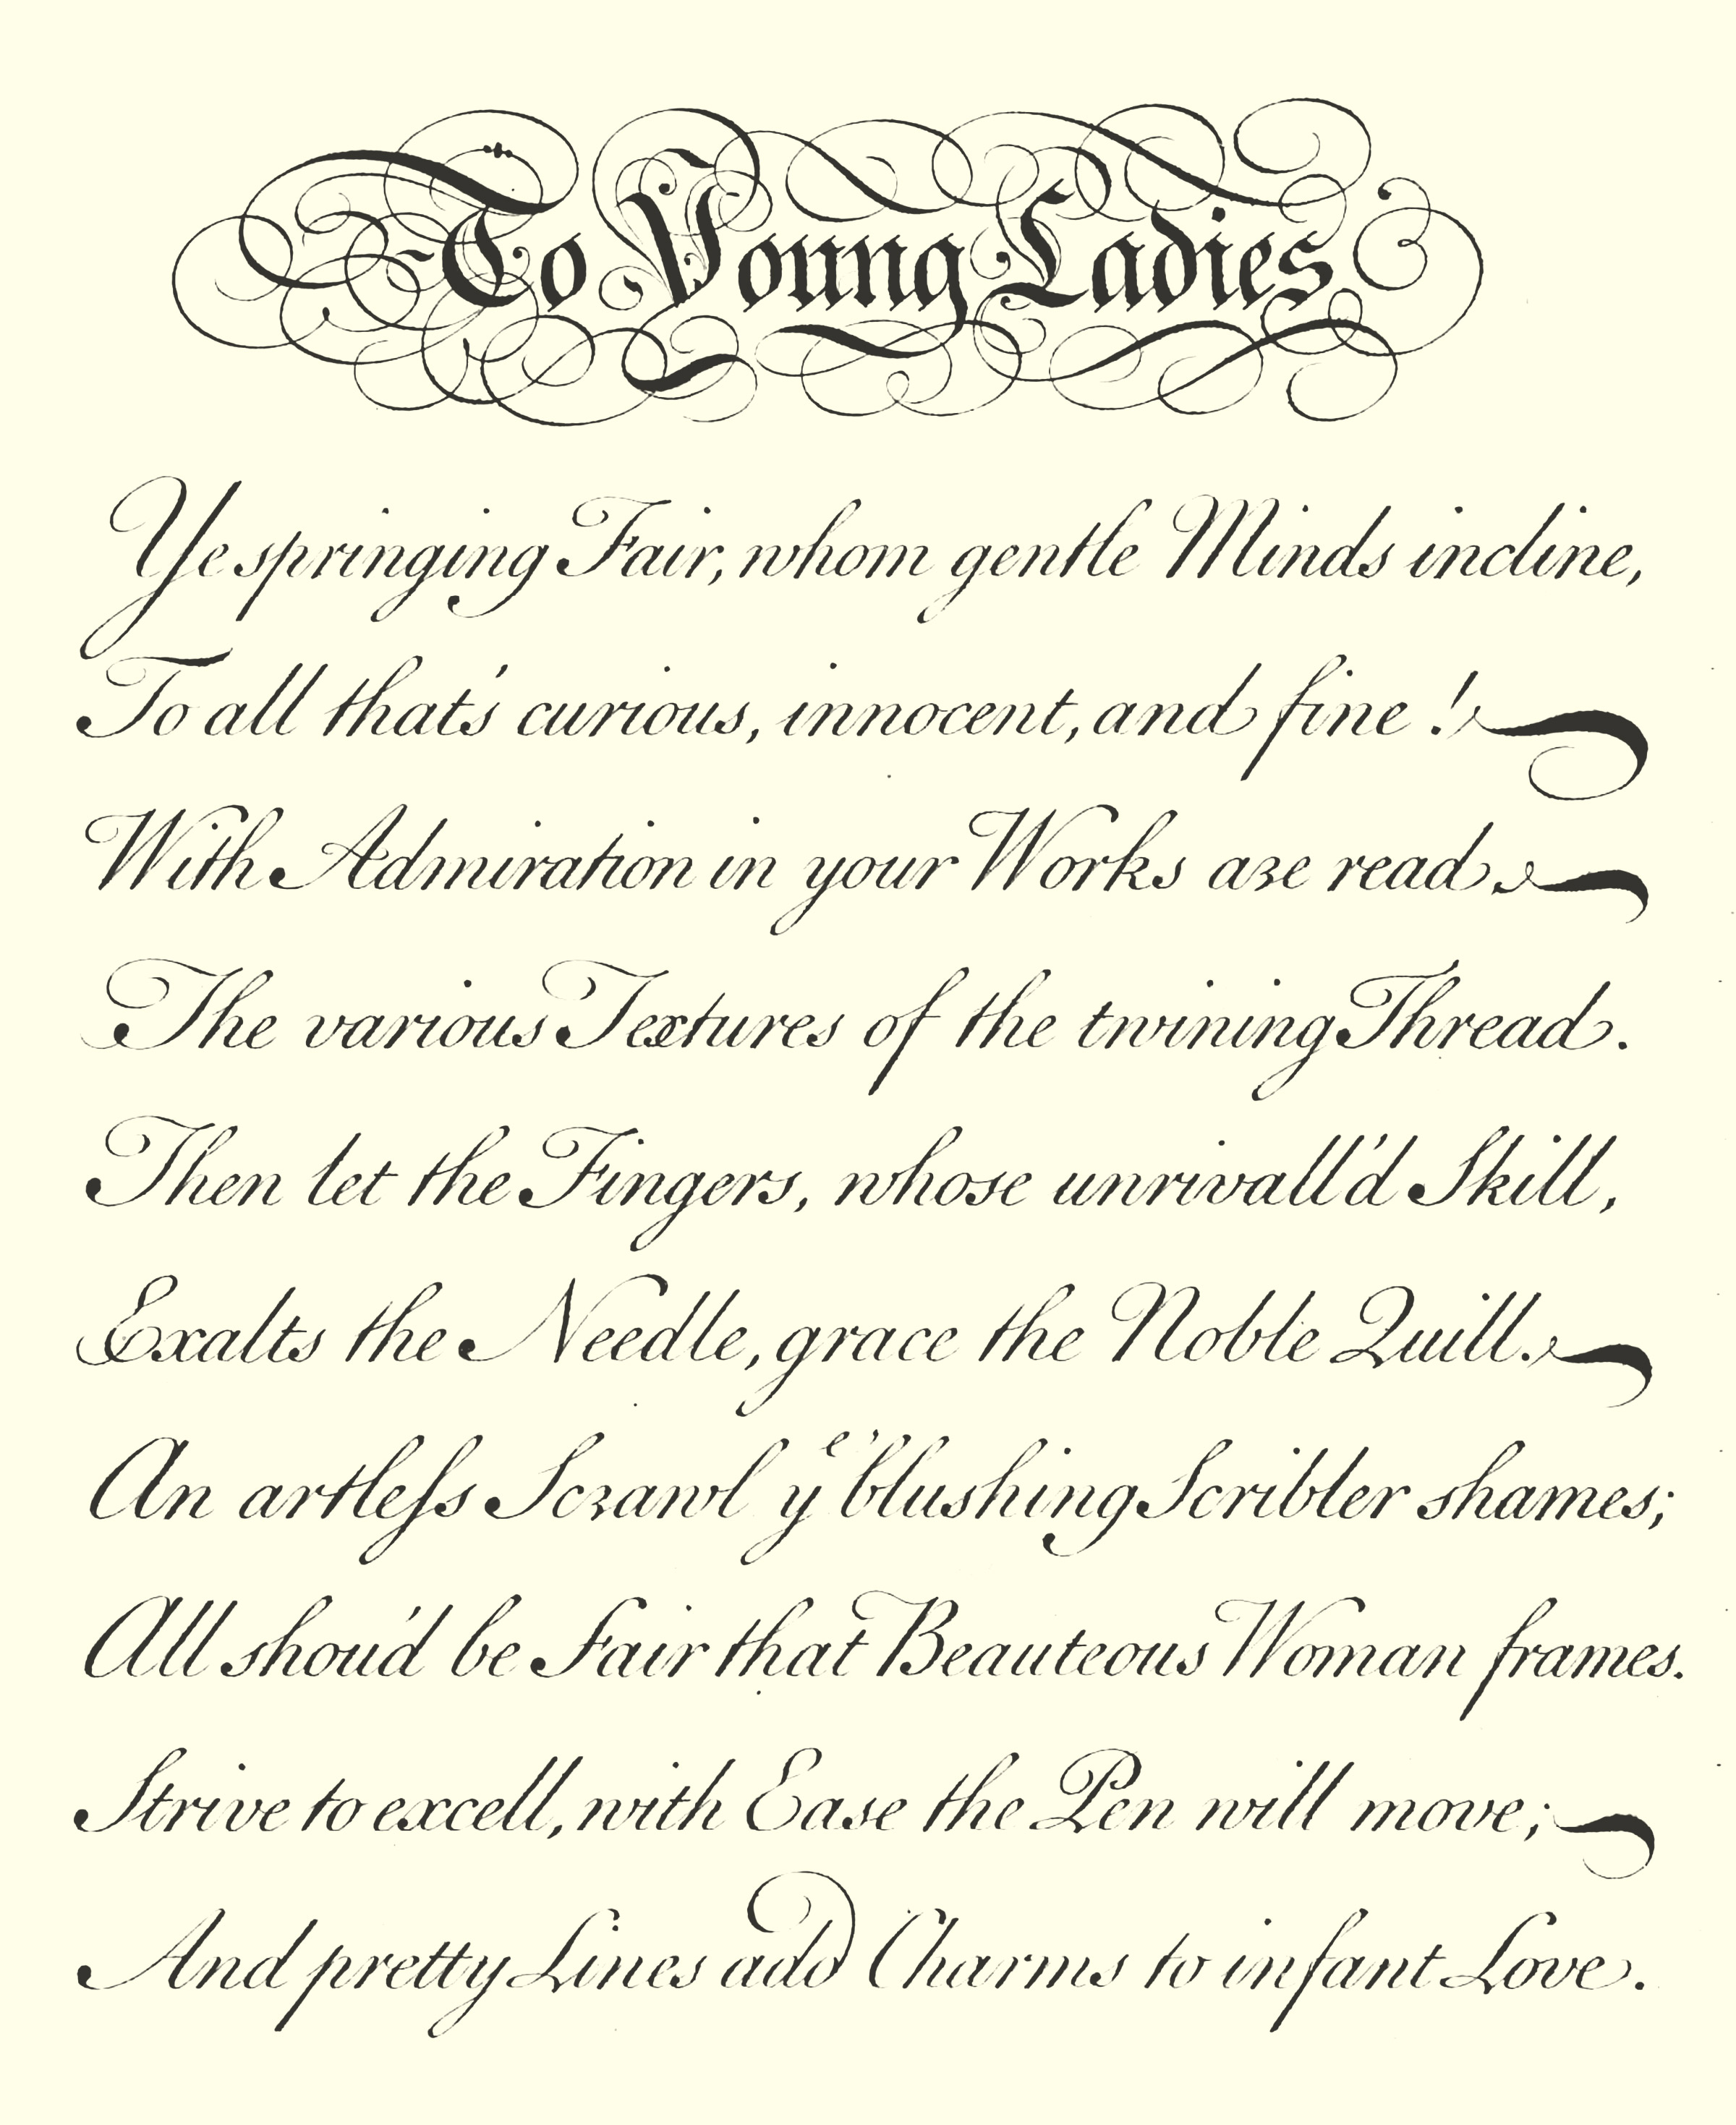 To Young Ladies
Ye springing Fair, whom gentle Minds incline,
To all that's curious, innocent, and fine!
With Admiration in your Works are read
The various Textures of the twining Thread.
Then let the Fingers, whose unrivall'd Skill,
Exalts the Needle, grace the Noble Quill.
An artleſs Scrawl yᵉ blushing Scribler shames;
All shou'd be Fair that Beauteous Woman frames.
Strive to excell, with Ease the Pen will move;
And pretty Lines add Charms to infant Love.